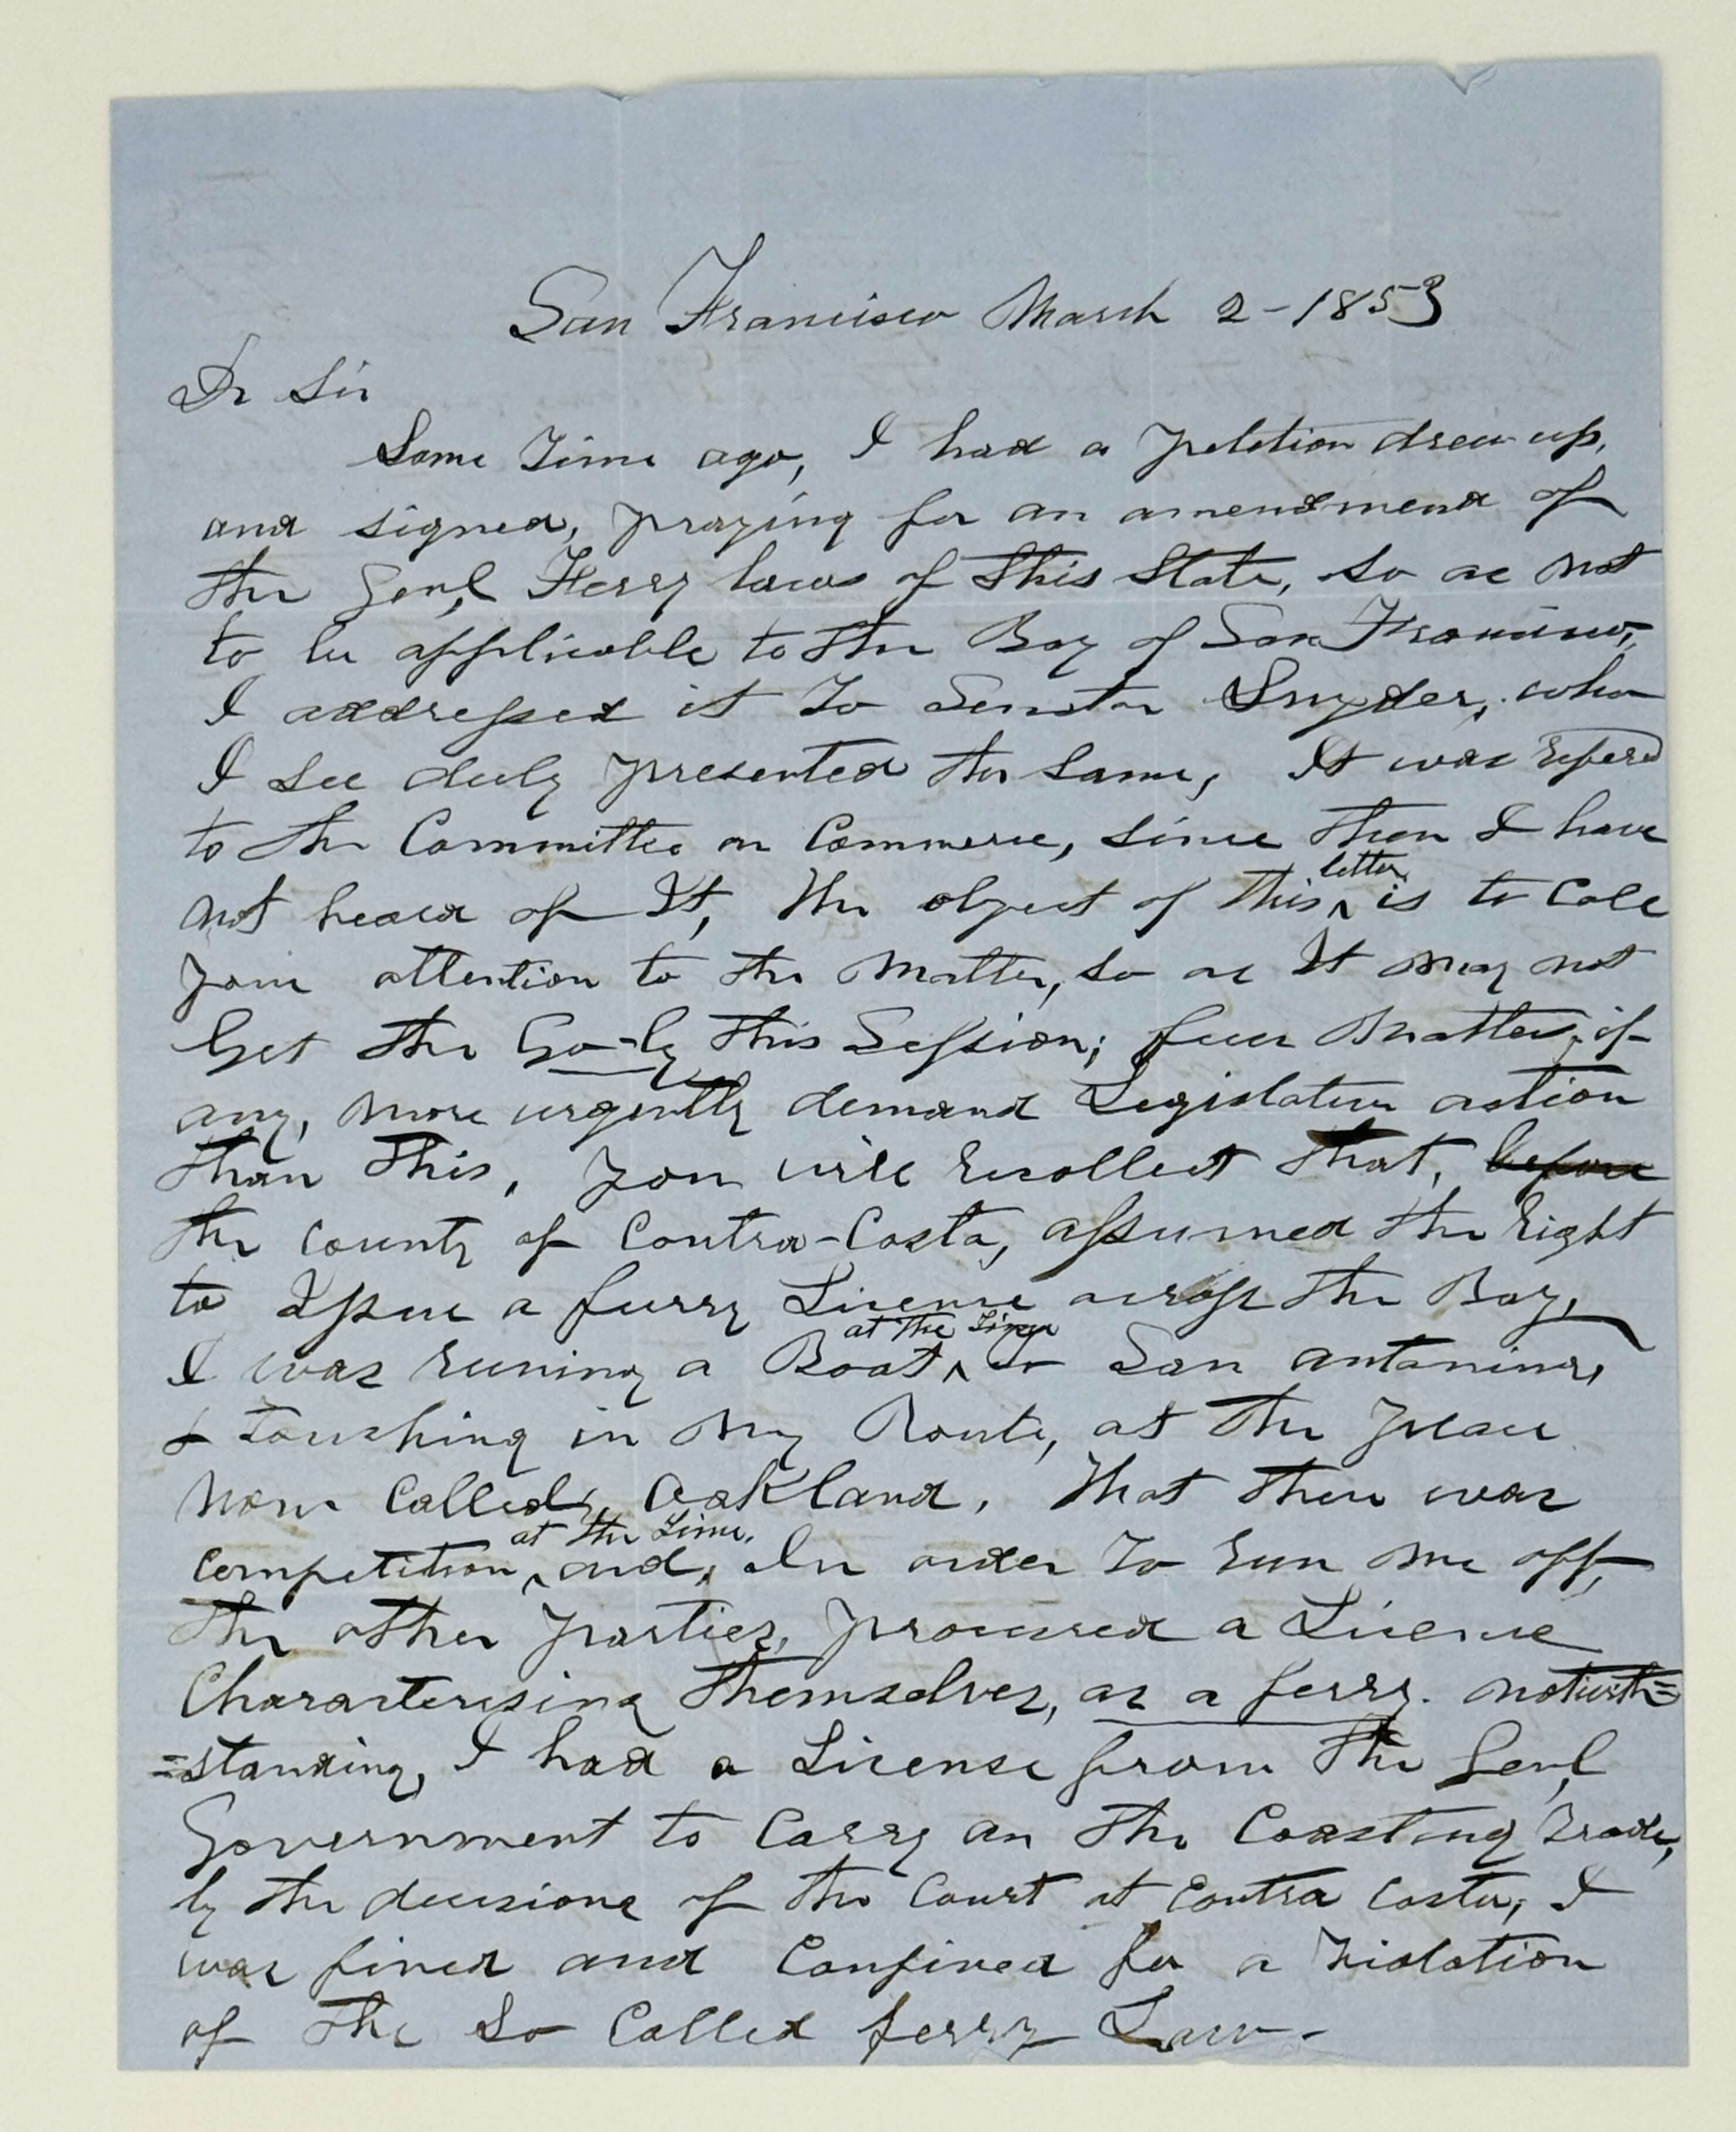 San Francisco March 2 - 1853
Dr Sir
Some Time ago, I had a petetion drew up,
and signed, praying for an amendment of
the Genl Ferry laws of this State, so as not
to be applicable to the Bay of San Francisco,
I addressed it To Senator Snyder, who
I see duly presented the same, It was refered
to the Committee on Commerce, since then I have
not heard of It, The object of this letter is to Call
your attention to the Matter, so as It may not
Get the Go-by this Session; few Matters, if
any, more urgently demand Legislature action
than this, you will recollect that, before
the County of Contra-Costa, assumed the right
to Issue a ferry License across the Bay,
I was runing a Boat at the Time to San antonine,
& touching in my Route, at the place
Now Called, Oakland, That there was
competition at the Time, and, In order To run me off,
the other parties, procured a License
Charactersising themselves, as a ferry. notwith=
=standing, I had a License from the Genl
Government to Carry on the Coasting Trade,
by the decisione of the Court at Contra Costa, I
was fined and Confined for a Violation
of the so Called ferry Law -